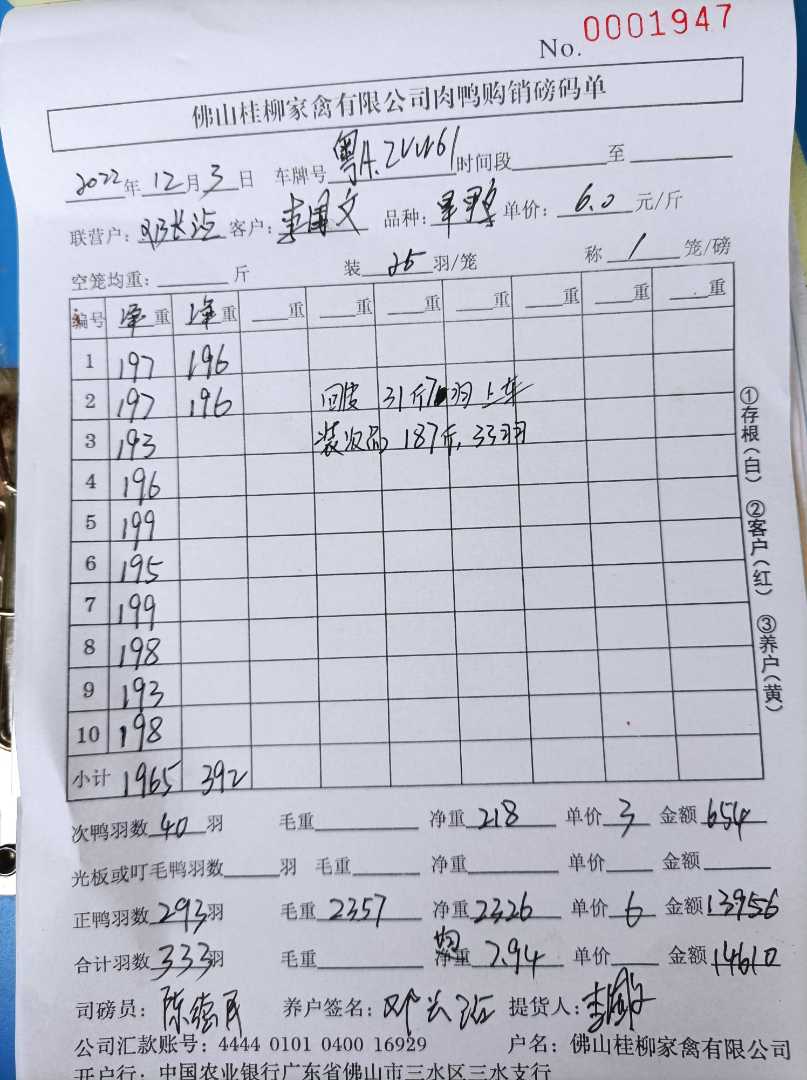 No. 0001947
佛山桂柳家禽有限公司肉鸭购销磅码单
2022年12月3日 车牌号粤A. 时间段 至
联营户: 客户: 李国文 品种: 单价: 6.0 元/斤
空笼均重: 斤 装 25 羽/笼 称 1 笼/磅
编号 净重 净重 重 重 重 重 重 重 重
1 197 196
2 197 196 回皮 31斤7羽上车
3 193 装次品 187斤, 33羽
4 196
5 199
6 195
7 199
8 198
9 193
10 198
小计 1965 392
次鸭羽数 40 羽 毛重 净重 218 单价 3 金额 654
光板或叮毛鸭羽数 羽 毛重 净重 单价 金额
正鸭羽数 293 羽 毛重 2357 净重 2326 单价 6 金额 13956
合计羽数 333 羽 毛重 均重 7.94 单价 金额 14610
司磅员: 陈德民 养户签名: 提货人:
公司汇款账号: 4444 0101 0400 16929 户名: 佛山桂柳家禽有限公司
开户行: 中国农业银行广东省佛山市三水区三水支行
①存根(白) ②客户(红) ③养户(黄)